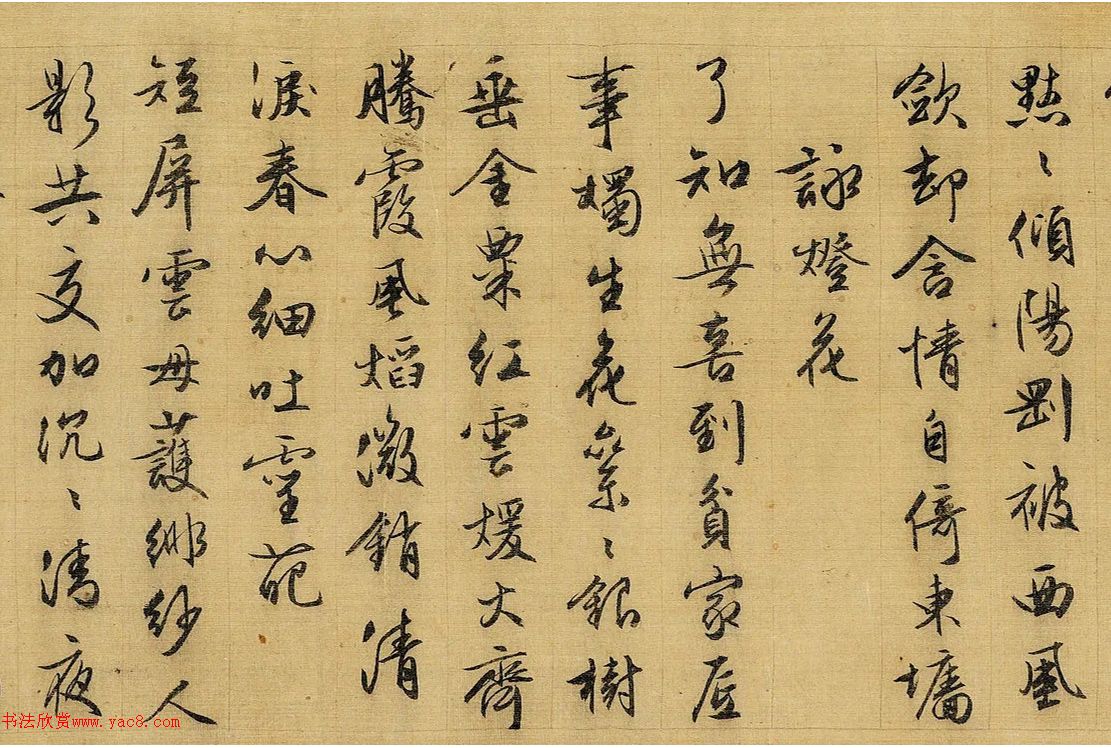 點〻傾陽剛被西風
歛却含情自倚東墻
詠燈花
了知無喜到貧家底
事燭生花蘂〻銀樹
垂金粟紅雲煖火齊
騰霞風熖微銷清
淚春心細吐靈葩
短屏雲母護緋紗人
影共交加沉〻清夜
书法欣赏www.yac8.com